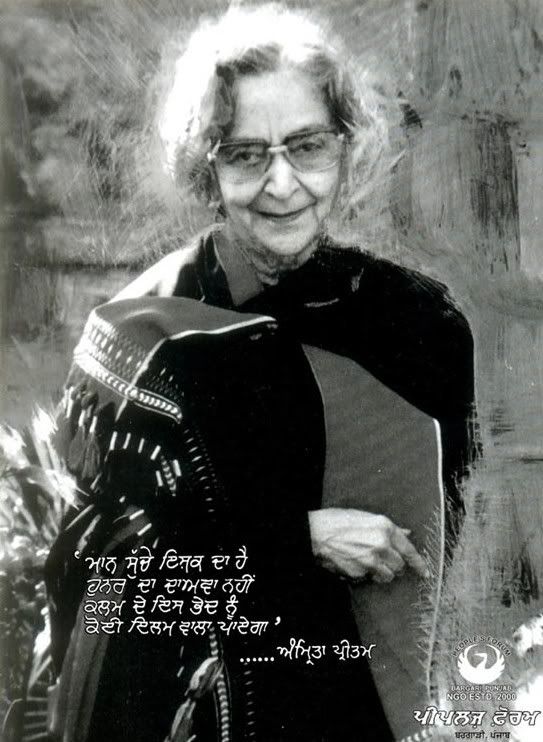 ‘ ਮਾਨ ਸੁੱਚੇ ਇਸ਼ਕ ਦਾ ਹੈ
ਹੁਨਰ ਦਾ ਦਾਅਵਾ ਨਹੀਂ
ਕਲਮ ਦੇ ਇਸ ਭੇਦ ਨੂੰ
ਕੋਈ ਇਲਮ ਵਾਲਾ ਪਾਏਗਾ ’
......ਅੰਮ੍ਰਿਤਾ ਪ੍ਰੀਤਮ
PEOPLE'S FORUM
BARGARI PUNJAB
NGO ESTD. 2000
ਪੀਪਲਜ਼ ਫ਼ੋਰਮ
ਬਰਗਾੜੀ, ਪੰਜਾਬ